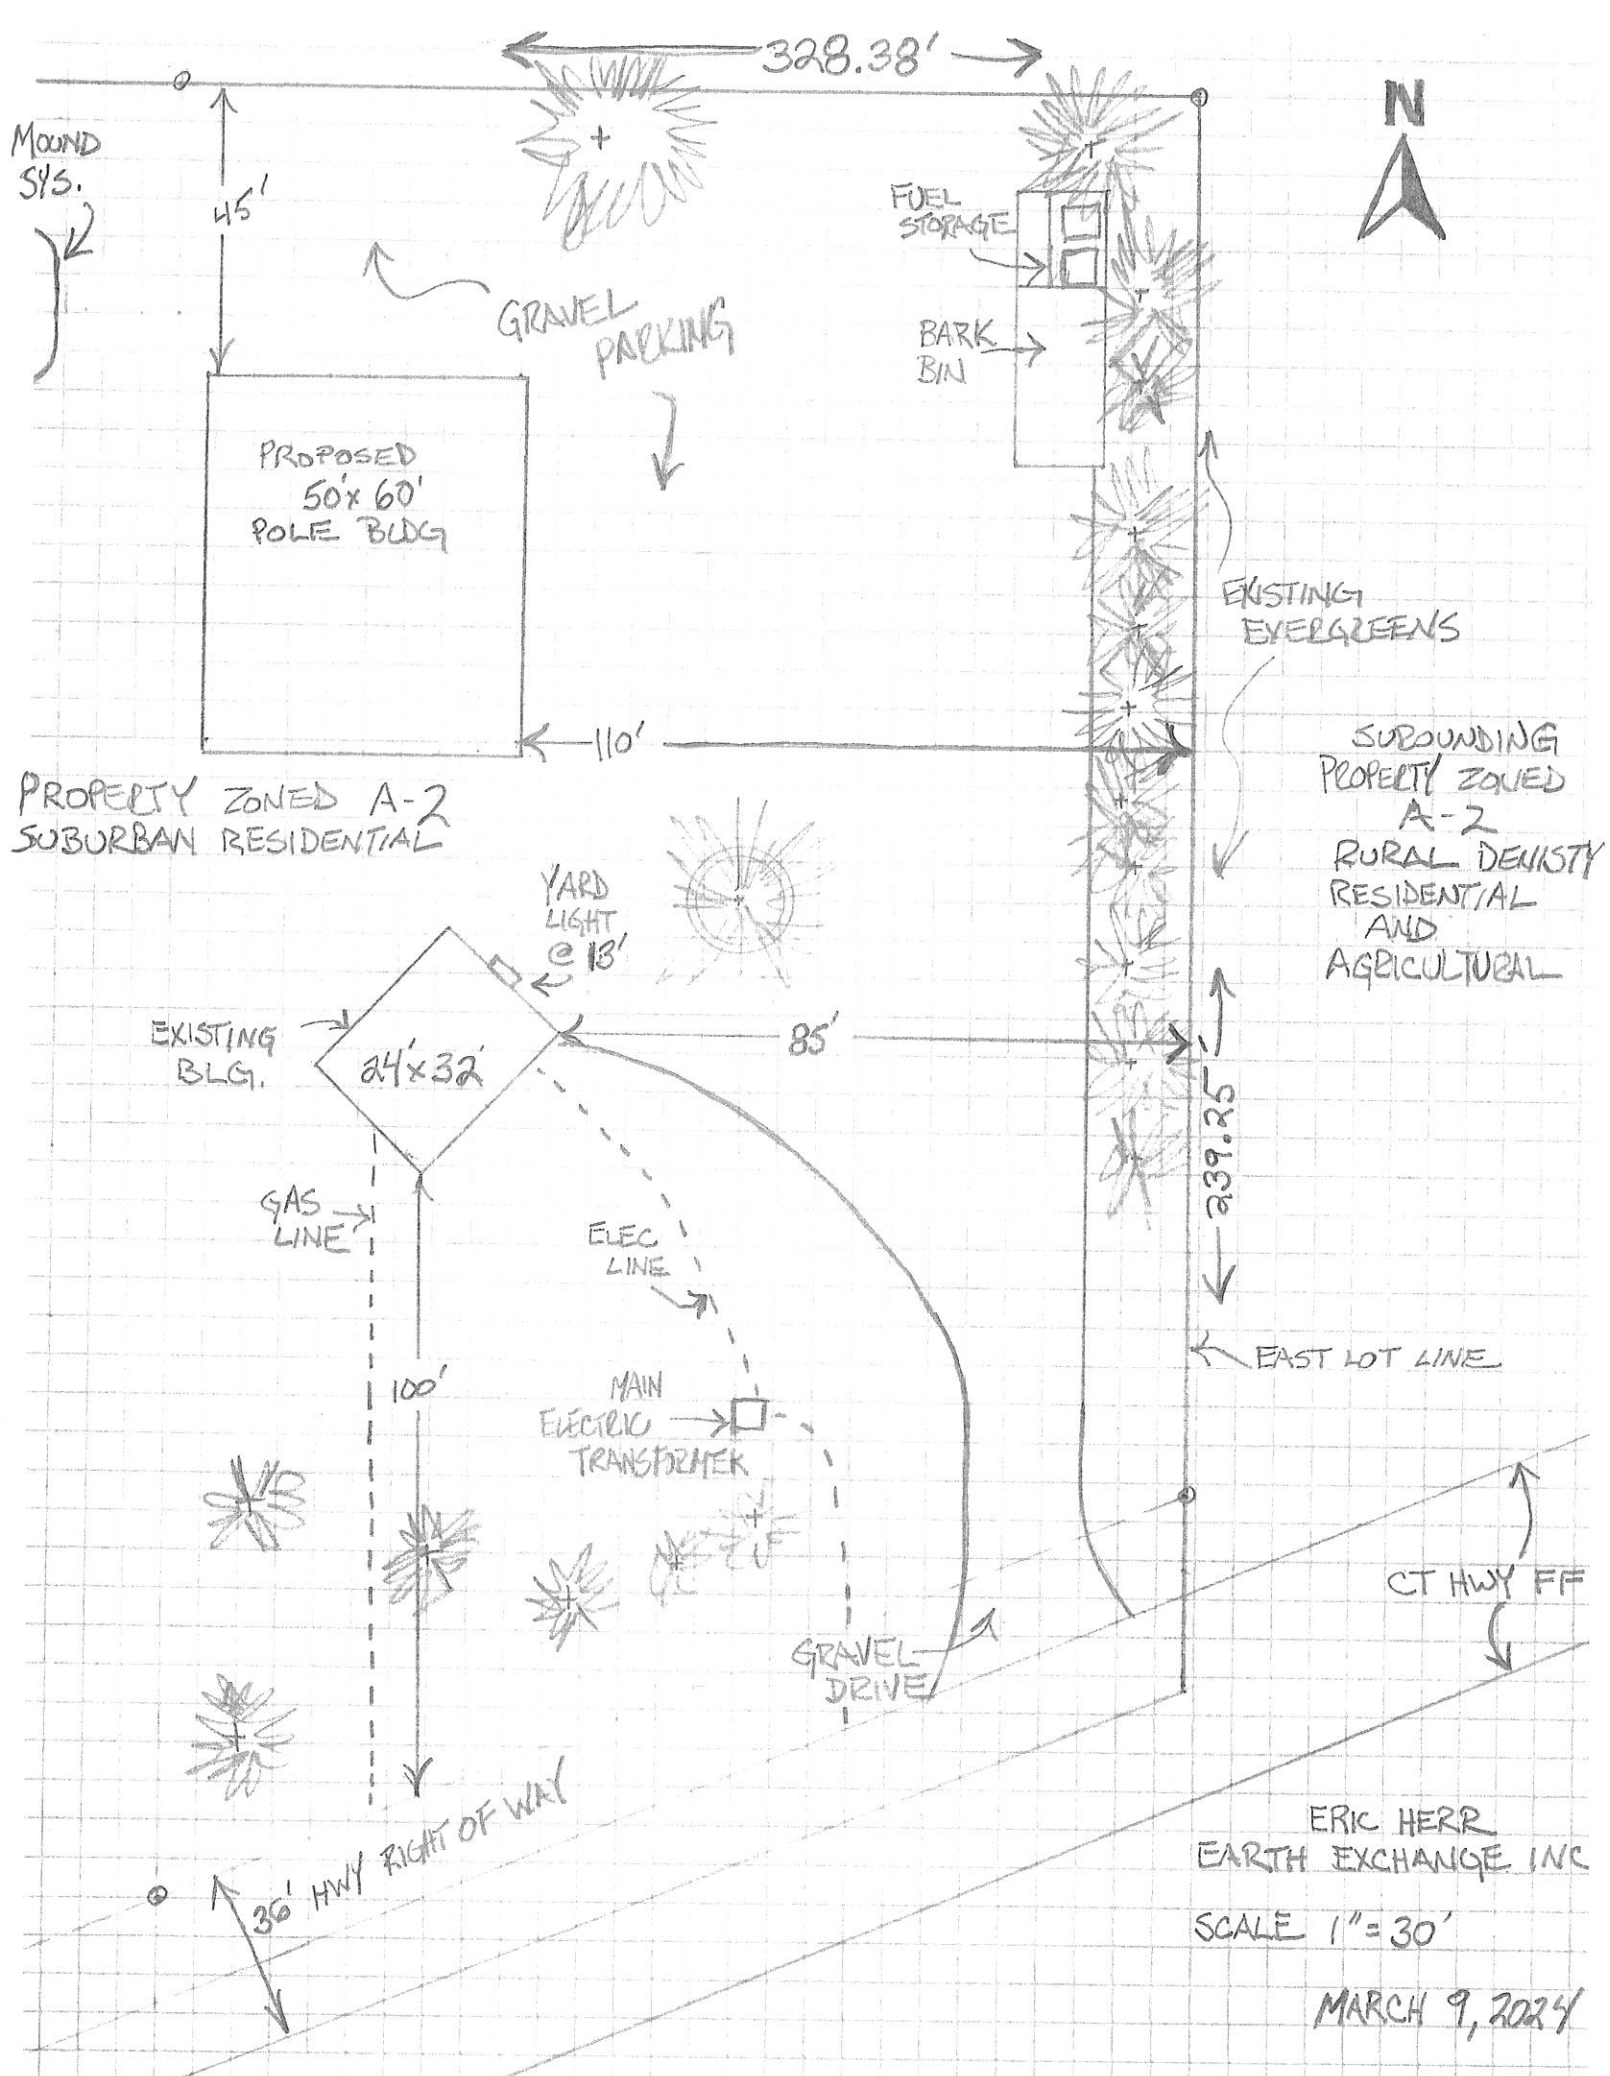 328.38'
N
MOUND
SYS.
45'
FUEL
STORAGE
GRAVEL
PARKING
BARK
BIN
PROPOSED
50'x 60'
POLE BLDG
EXISTING
EVERGREENS
110'
PROPERTY ZONED A-2
SUBURBAN RESIDENTIAL
SUROUNDING
PROPERTY ZONED
A-2
RURAL DENISTY
RESIDENTIAL
AND
AGRICULTURAL
YARD
LIGHT
@ 13'
EXISTING
BLG.
24'x32'
85'
239.25'
GAS
LINE
ELEC
LINE
EAST LOT LINE
100'
MAIN
ELECTRIC
TRANSFORMER
CT HWY FF
GRAVEL
DRIVE
36' HWY RIGHT OF WAY
ERIC HERR
EARTH EXCHANGE INC
SCALE 1"=30'
MARCH 9, 2024